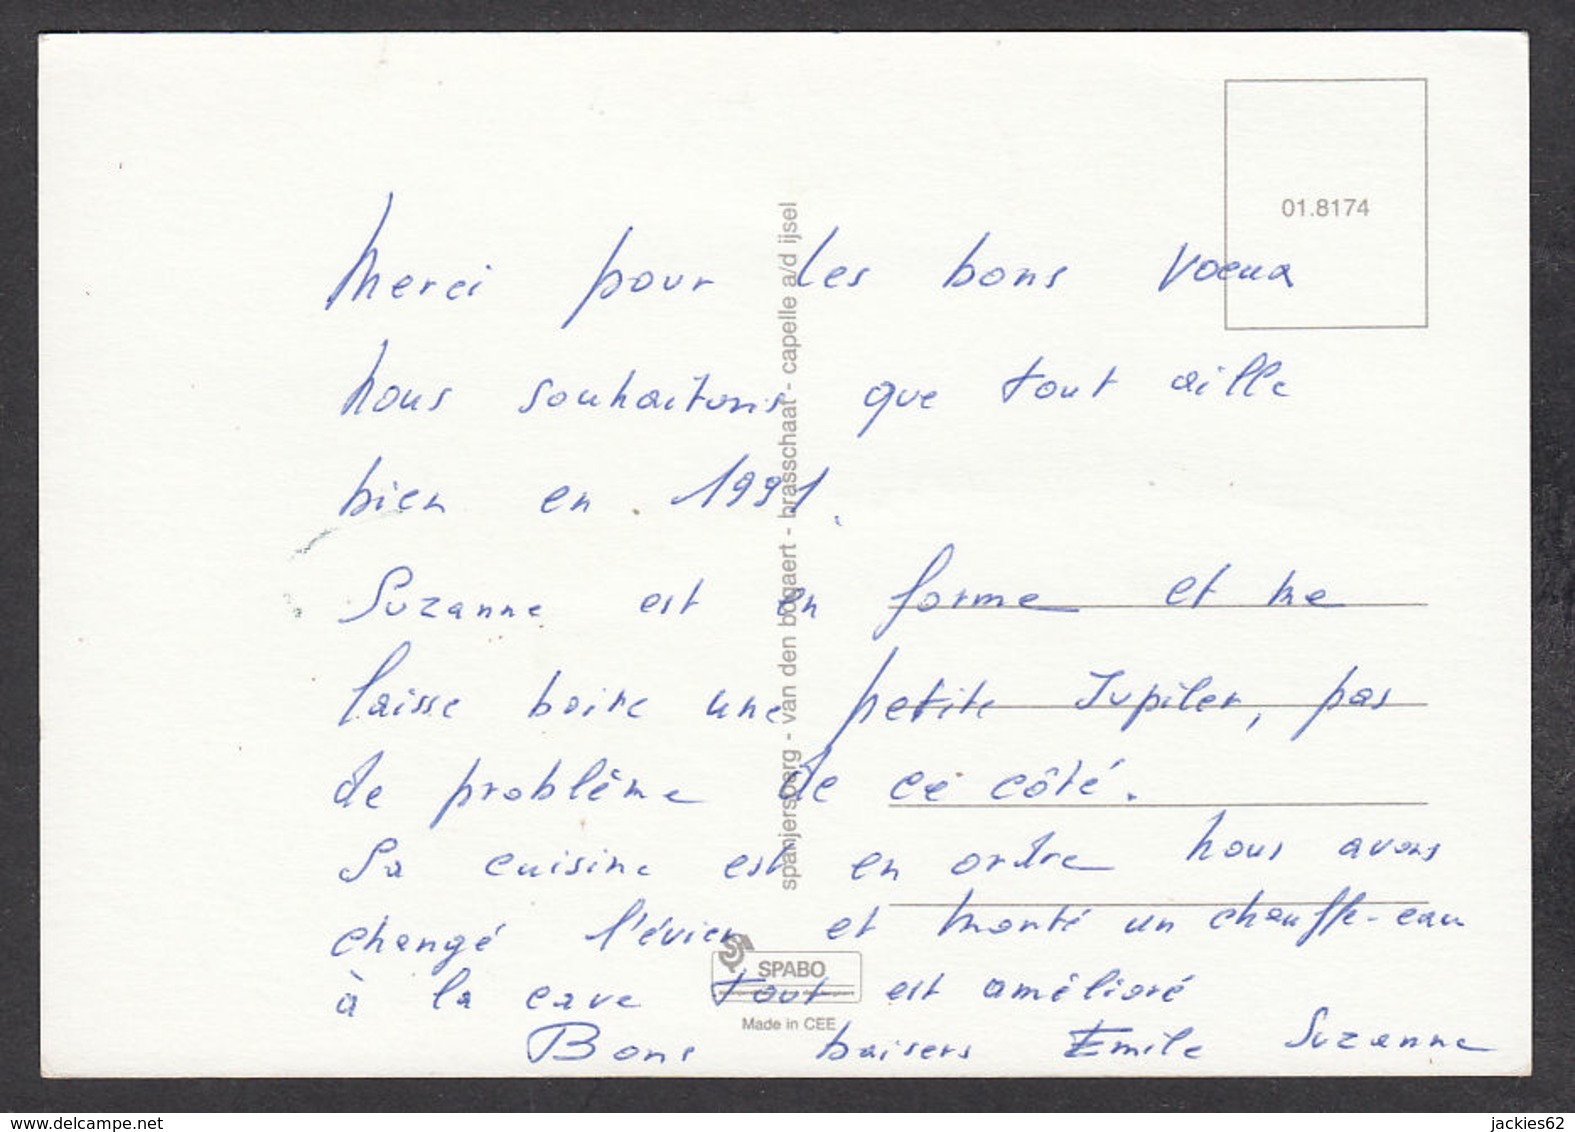 01.8174
Merci pour les bons voeux
nous souhaitons que tout aille
bien en 1991.
Suzanne est en forme et me
laisse boire une petite Jupiler, pas
de problême de ce côté.
Sa cuisine est en ordre nous avons
changé l'évier et monté un chauffe-eau
à la cave tout est amélioré
Bons baisers Emile Suzanne
spanjersberg - van den bogaert - brasschaat - capelle a/d ijsel
SPABO
Made in CEE
delcampe.net
jackies62